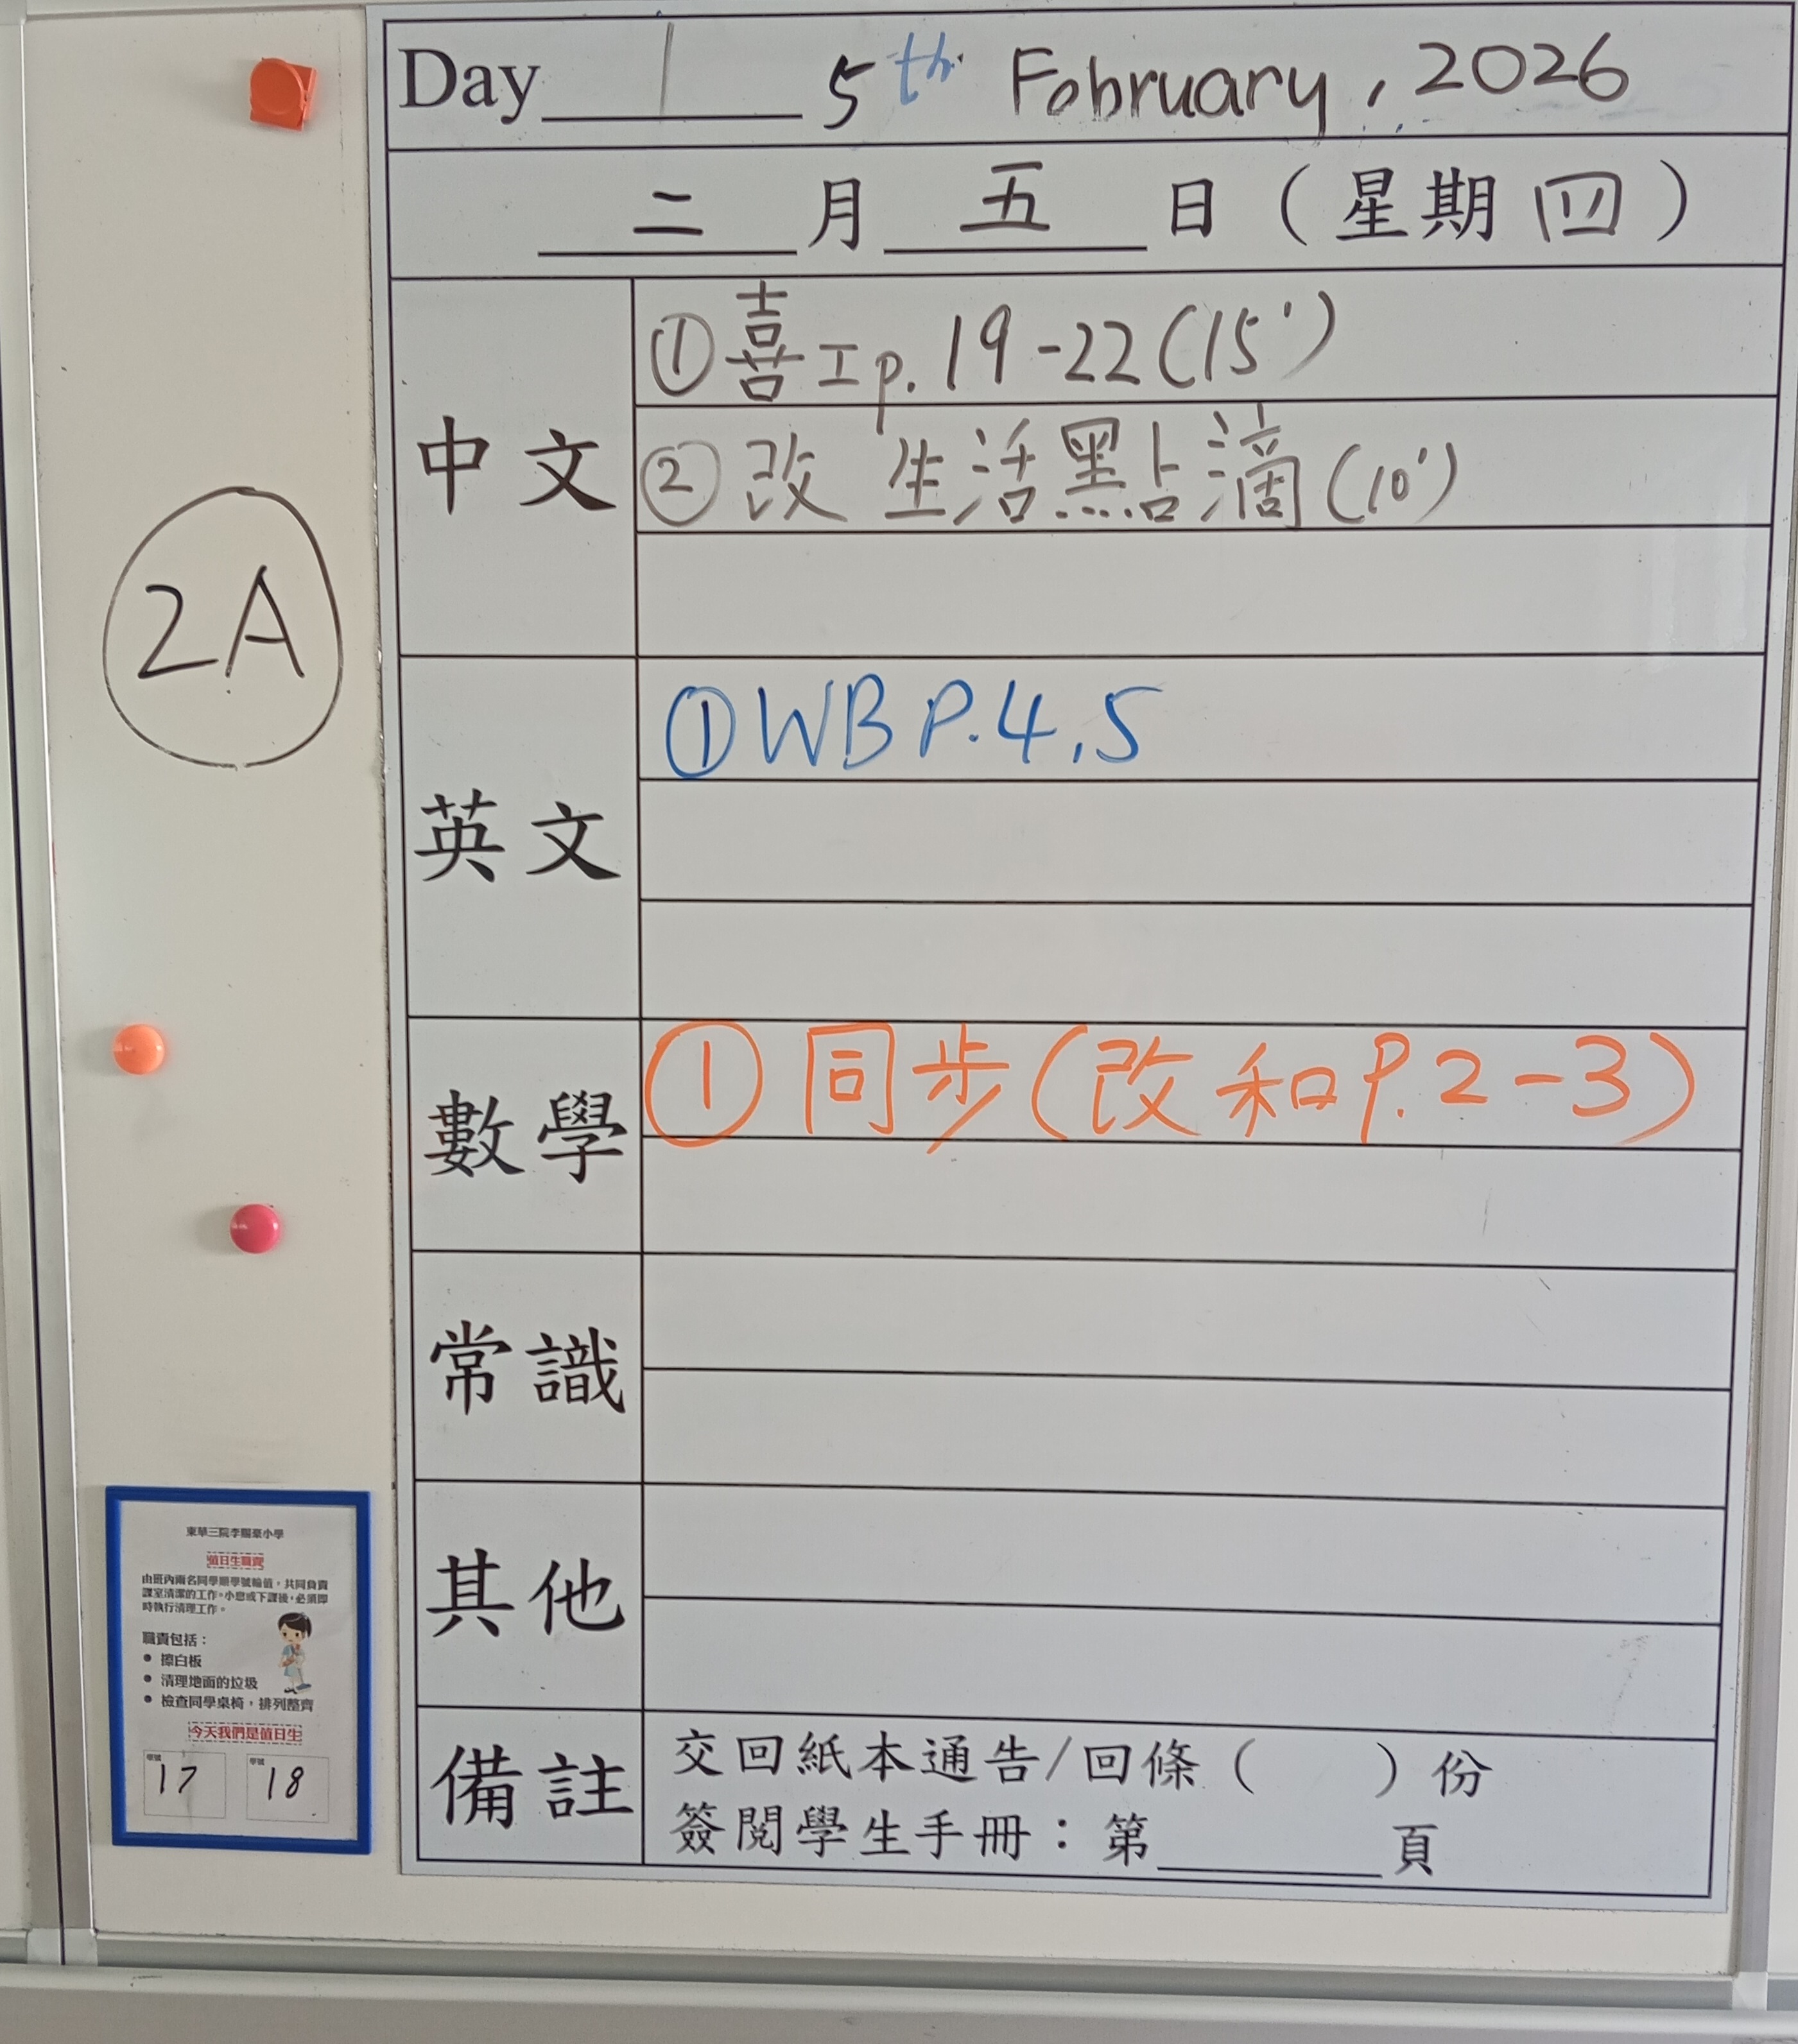 Day 1 5th February, 2026
二 月 五 日 ( 星期 四 )
中文
① 喜工p.19-22(15')
② 改 生活點滴(10')
英文
① WB P.4,5
數學
① 同步(改和P.2-3)
常識
其他
備註
交回紙本通告/回條 ( ) 份
簽閱學生手冊：第 頁
2A
東華三院李賜豪小學
值日生職責
由班內兩名同學順學號輪值，共同負責
課室清潔的工作。小息或下課後，必須即
時執行清理工作。
職責包括：
• 擦白板
• 清理地面的垃圾
• 檢查同學桌椅，排列整齊
今天我們是值日生
學號 17 學號 18